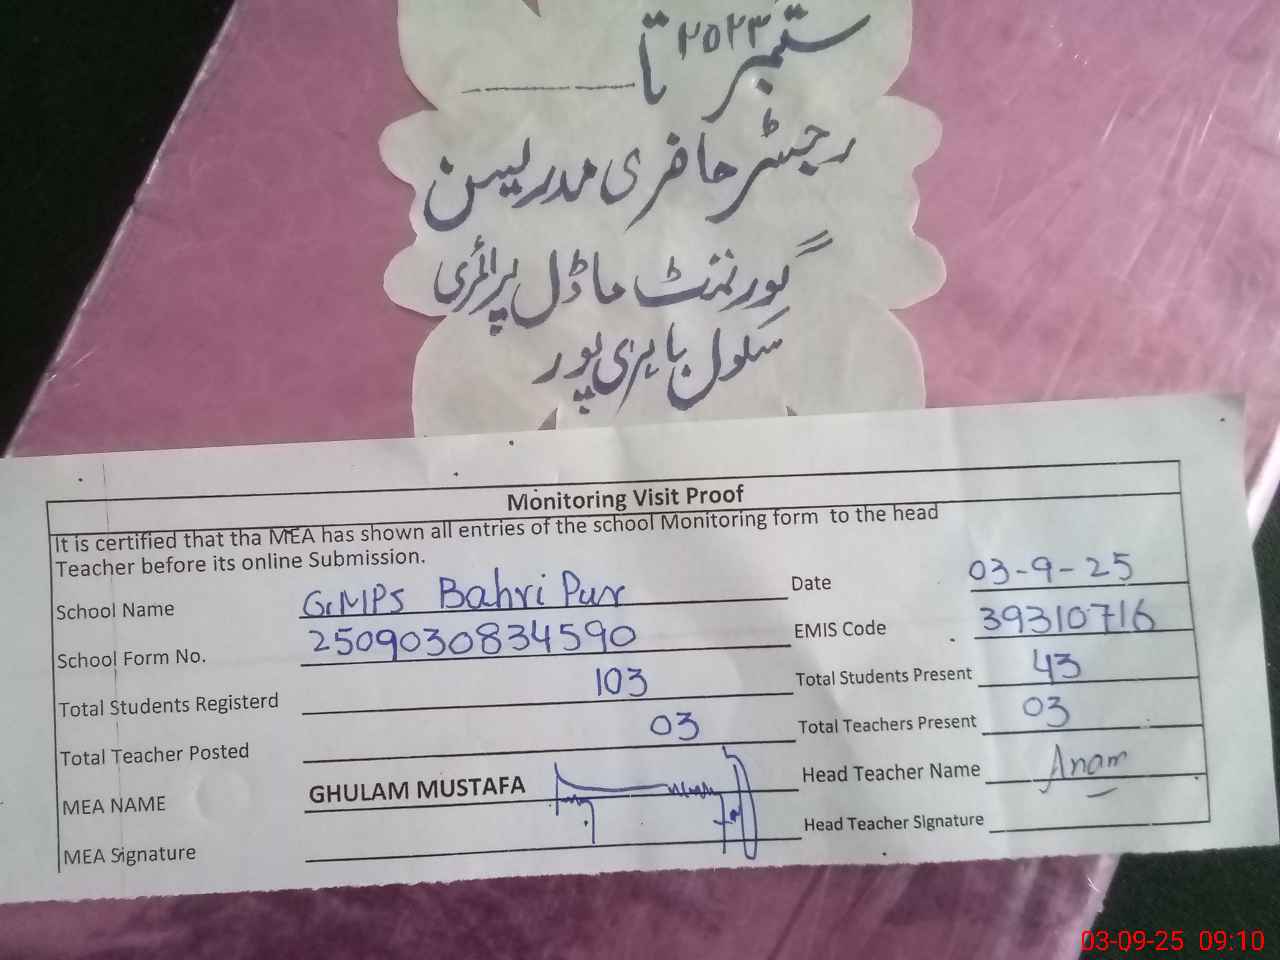 ستمبر ۲۰۲۳ تا
رجسٹر حاضری مدرسین
گورنمنٹ ماڈل پرائمری
سکول باہری پور
Monitoring Visit Proof
It is certified that tha MEA has shown all entries of the school Monitoring form to the head
Teacher before its online Submission.
School Name GMPS Bahri Pur Date 03-9-25
School Form No. 2509030834590 EMIS Code 39310716
Total Students Registerd 103 Total Students Present 43
Total Teacher Posted 03 Total Teachers Present 03
MEA NAME GHULAM MUSTAFA Head Teacher Name Anam
MEA Signature Head Teacher Signature
03-09-25 09:10